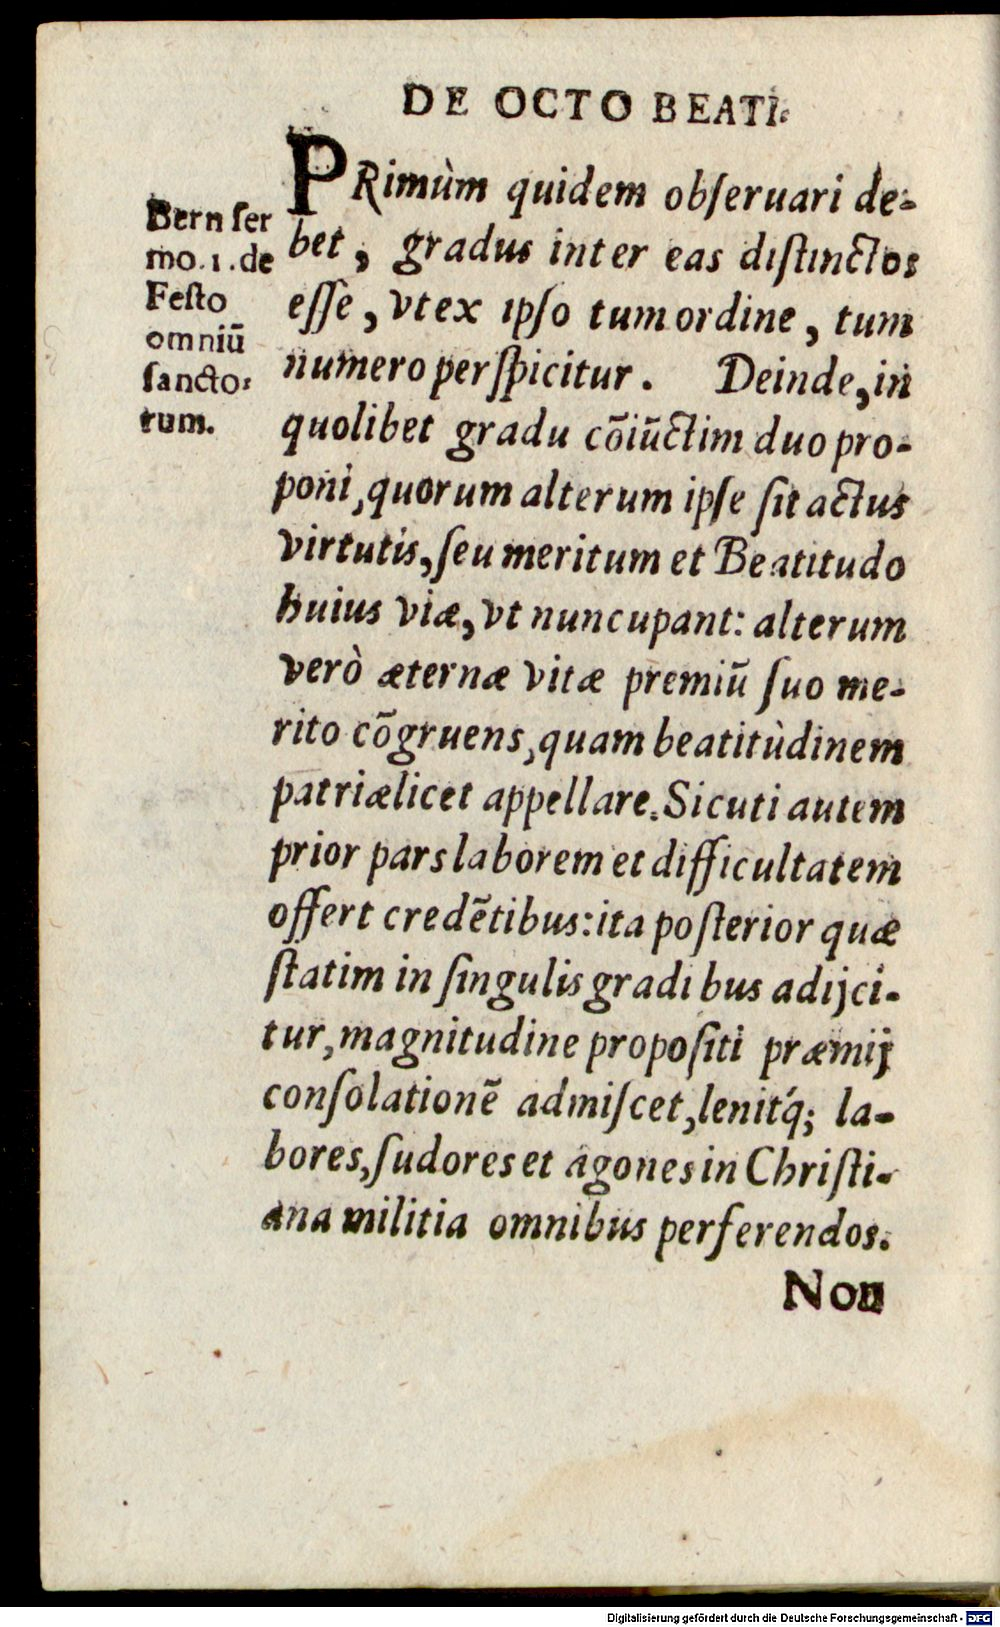 DE OCTO BEATI-
PRimùm quidem obſeruari de-
bet, gradus inter eas diſtinctos
eſſe, vt ex ipſo tum ordine, tum
numero perſpicitur. Deinde, in
quolibet gradu cõiũctim duo pro-
poni, quorum alterum ipſe ſit actus
virtutis, ſeu meritum et Beatitudo
huius viæ, vt nuncupant: alterum
verò æternæ vitæ premiũ ſuo me-
rito cõgruens, quam beatitùdinem
patriæ licet appellare. Sicuti autem
prior pars laborem et difficultatem
offert credẽtibus: ita poſterior quæ
ſtatim in ſingulis gradibus adijci-
tur, magnitudine propoſiti præmij
conſolationẽ admiſcet, lenitq́; la-
bores, ſudores et agones in Chriſti-
ana militia omnibus perferendos.
Non
Bern ſer
mo. 1. de
Feſto
omniũ
ſancto-
rum.
Digitalisierung gefördert durch die Deutsche Forschungsgemeinschaft - DFG